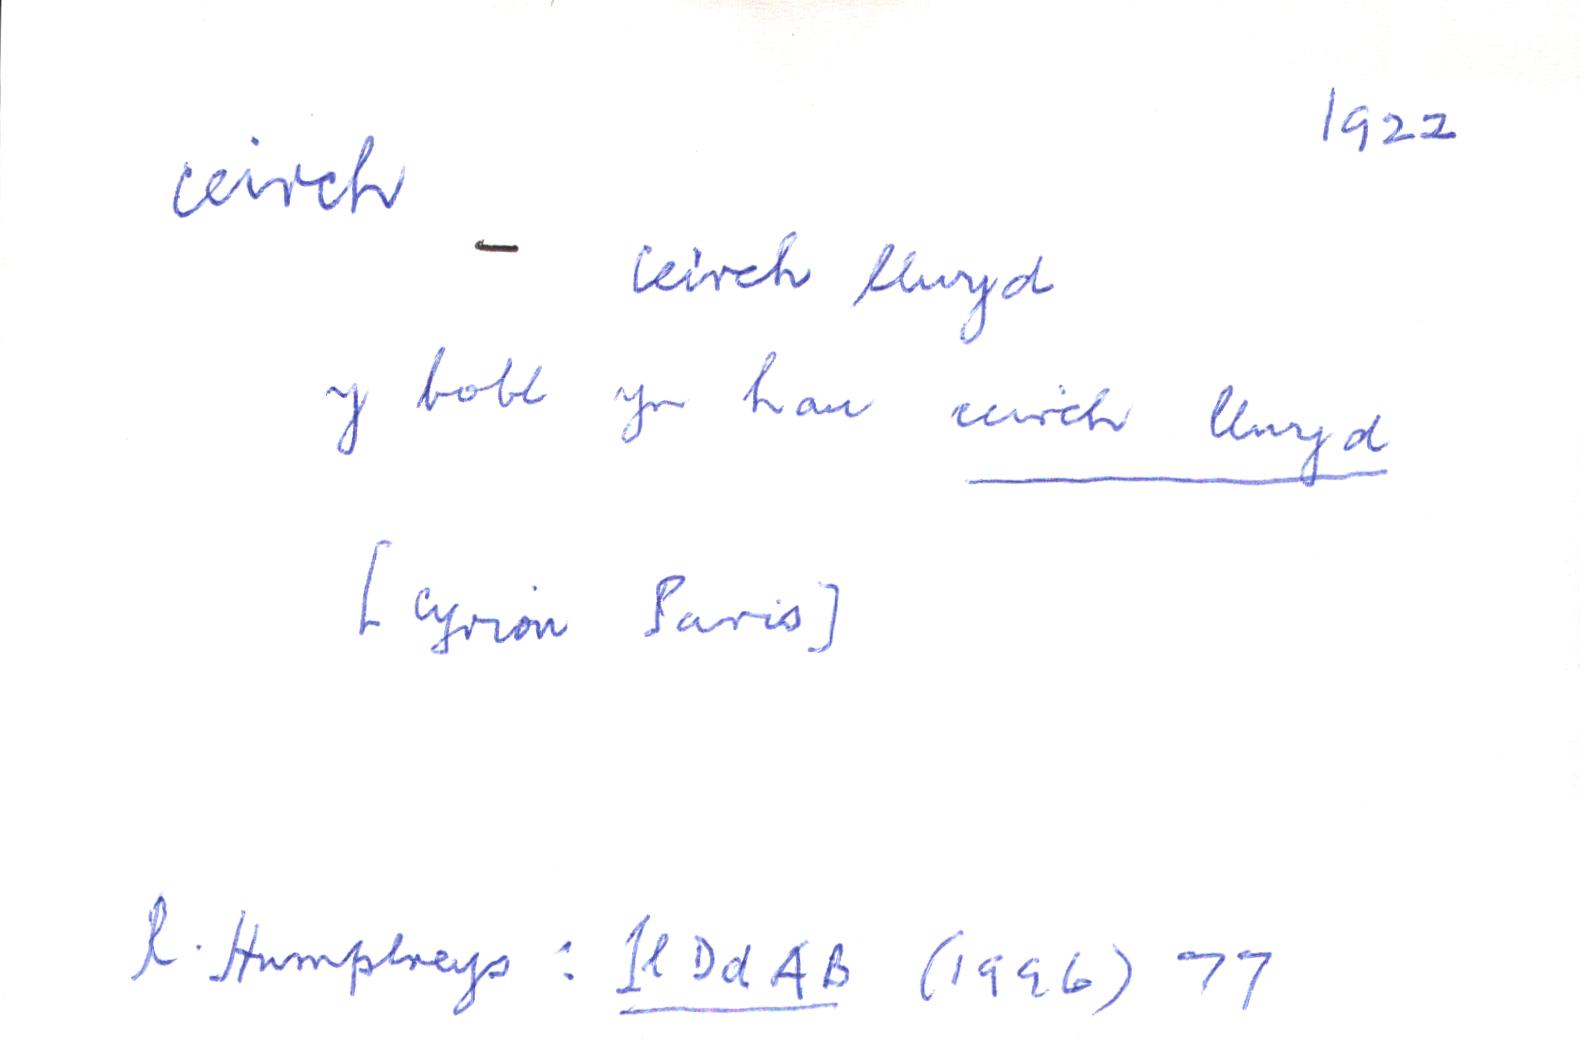 1922
ceirch
– ceirch llwyd
y bobl yn hau ceirch llwyd
[Cyrion Paris]
R. Humphreys : Il DdAB (1996) 77